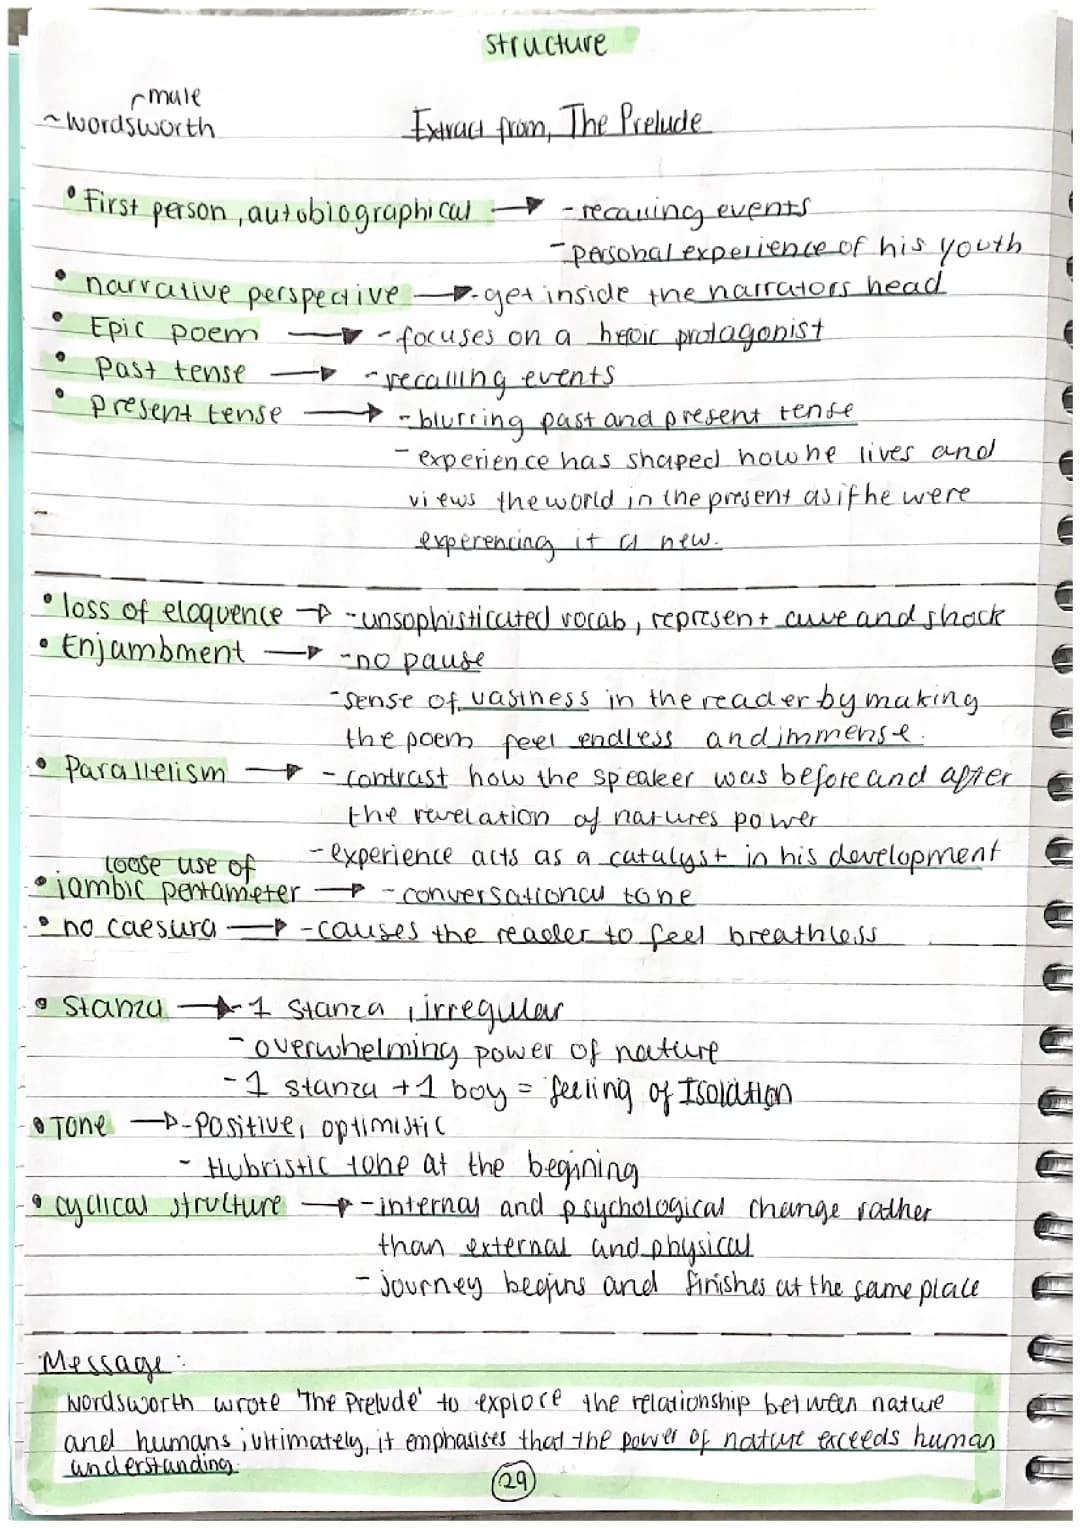 Structure
male
~Wordsworth
Extract from, The Prelude
• First person, autobiographical → - recalling events
- personal experience of his youth
• narrative perspective → - get inside the narrators head
• Epic poem → - focuses on a heroic protagonist
• Past tense → - recalling events
• Present tense → - blurring past and present tense
- experience has shaped how he lives and
views the world in the present as if he were
experencing it a new.
• loss of eloquence → - unsophisticated vocab, represent awe and shock
• Enjambment → - no pause
- sense of vastness in the reader by making
the poem feel endless and immense.
• Parallelism → - contrast how the speaker was before and after
the revelation of natures power
- experience acts as a catalyst in his development
loose use of
• iambic pentameter → - conversational tone
• no caesura → - causes the reader to feel breathless
• Stanza → - 1 stanza, irregular
- overwhelming power of nature
- 1 stanza + 1 boy = feeling of Isolation
• Tone → - Positive, optimistic
- Hubristic tone at the begining
• cyclical structure → - internal and psychological change rather
than external and physical
- journey begins and finishes at the same place
Message:
Wordsworth wrote 'The Prelude' to explore the relationship between nature
and humans; ultimately, it emphasises that the power of nature exceeds human
understanding.
29